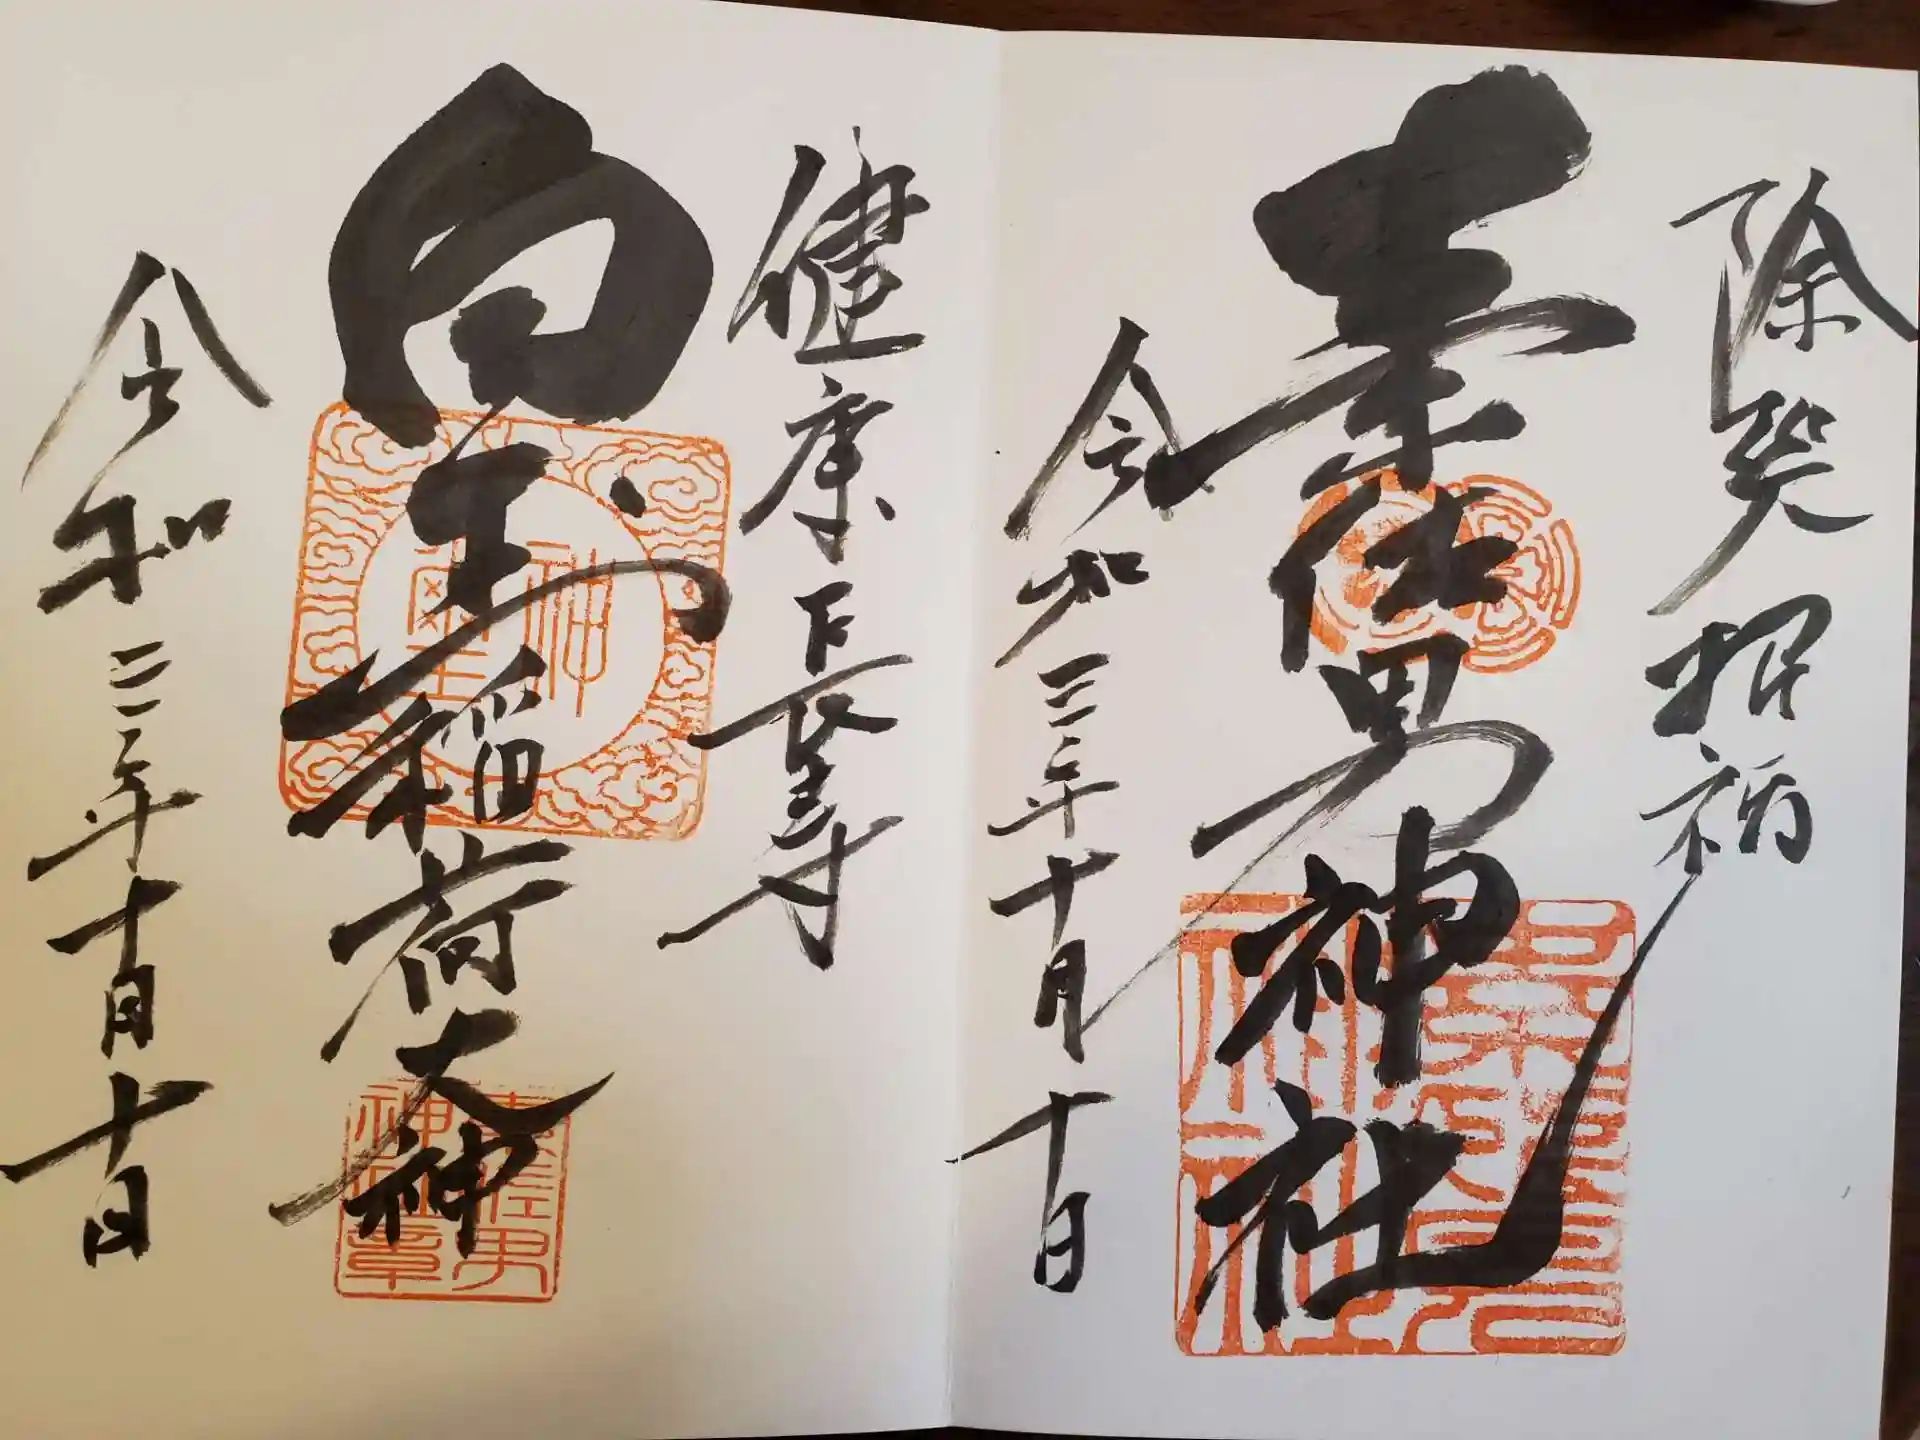 除災招福
素佐男神社
令和三年十月十日
健康長寿
白玉稲荷大神
令和三年十月十日
神璽
素佐男
神社章